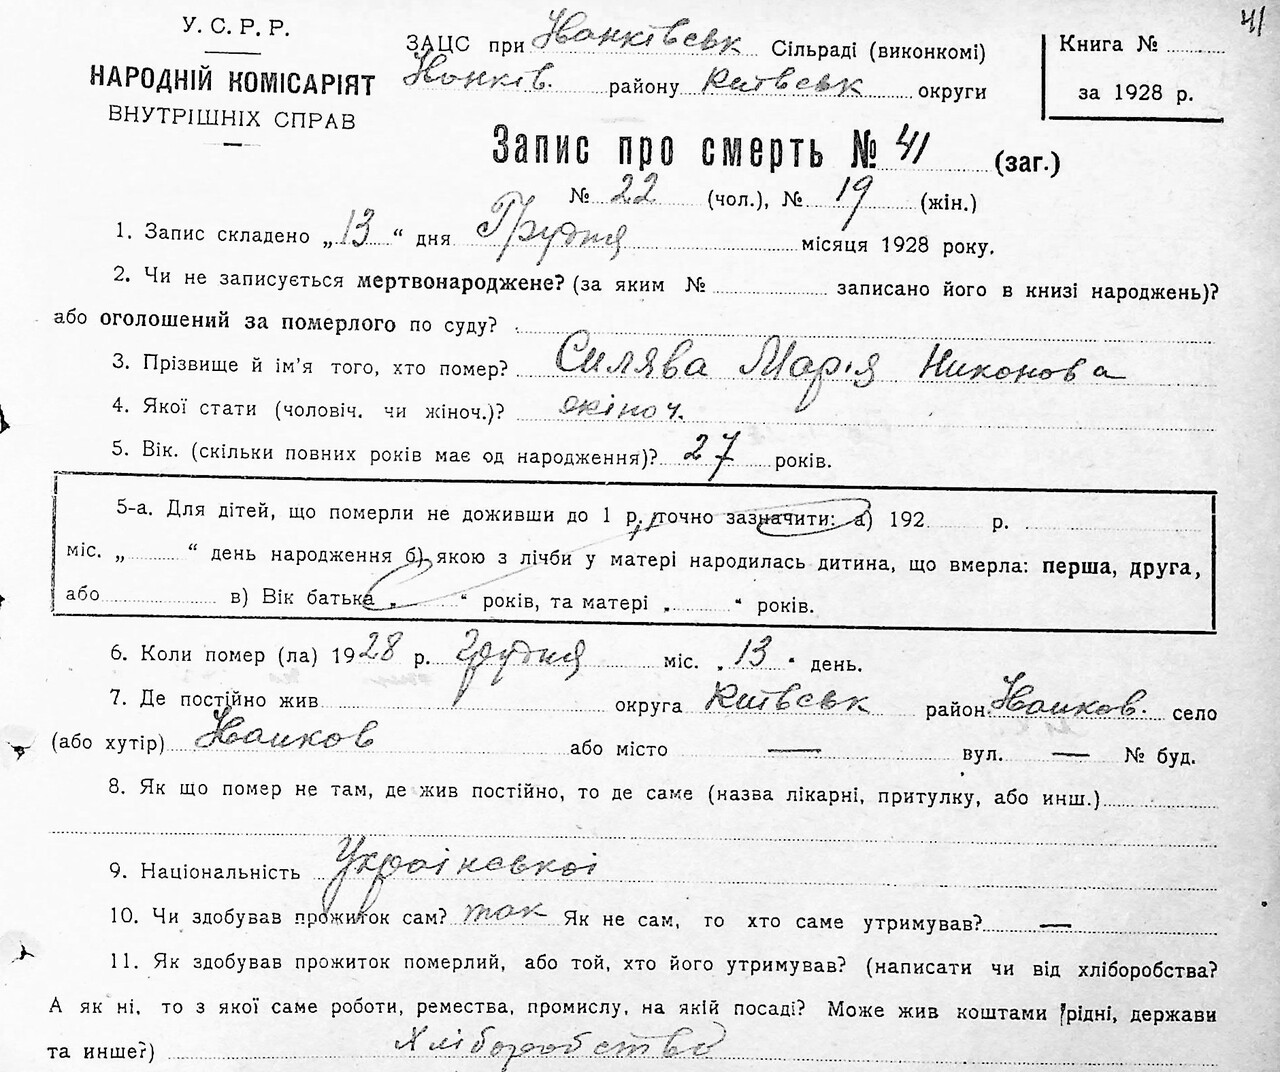 41
У. С. Р. Р.
НАРОДНІЙ КОМІСАРІЯТ
ВНУТРІШНІХ СПРАВ
ЗАЦС при Іванківськ Сільраді (виконкомі)
Іванків. району Київськ округи
Книга №
за 1928 р.
Запис про смерть № 41 (заг.)
№ 22 (чол.), № 19 (жін.)
1. Запис складено „13“ дня Грудня місяця 1928 року.
2. Чи не записується мертвонароджене? (за яким № записано його в книзі народжень)?
або оголошений за померлого по суду?
3. Прізвище й ім’я того, хто помер? Силява Марія Никонова
4. Якої стати (чоловіч. чи жіноч.)? жіноч.
5. Вік. (скільки повних років має од народження)? 27 років.
5-а. Для дітей, що померли не доживши до 1 р. точно зазначити: а) 192 р.
міс. „ “ день народження б) якою з лічби у матері народилась дитина, що вмерла: перша, друга,
або в) Вік батька „ “ років, та матері „ “ років.
6. Коли помер (ла) 1928 р. грудня міс. „13“ день.
7. Де постійно жив округа Київськ район Іванков. село
(або хутір) Іванков або місто — вул. — № буд.
8. Як що помер не там, де жив постійно, то де саме (назва лікарні, притулку, або инш.)
9. Національність Українськоі
10. Чи здобував прожиток сам? так Як не сам, то хто саме утримував? —
11. Як здобував прожиток померлий, або той, хто його утримував? (написати чи від хліборобства?
А як ні, то з якої саме роботи, ремества, промислу, на якій посаді? Може жив коштами рідні, держави
та инше?) Хліборобство